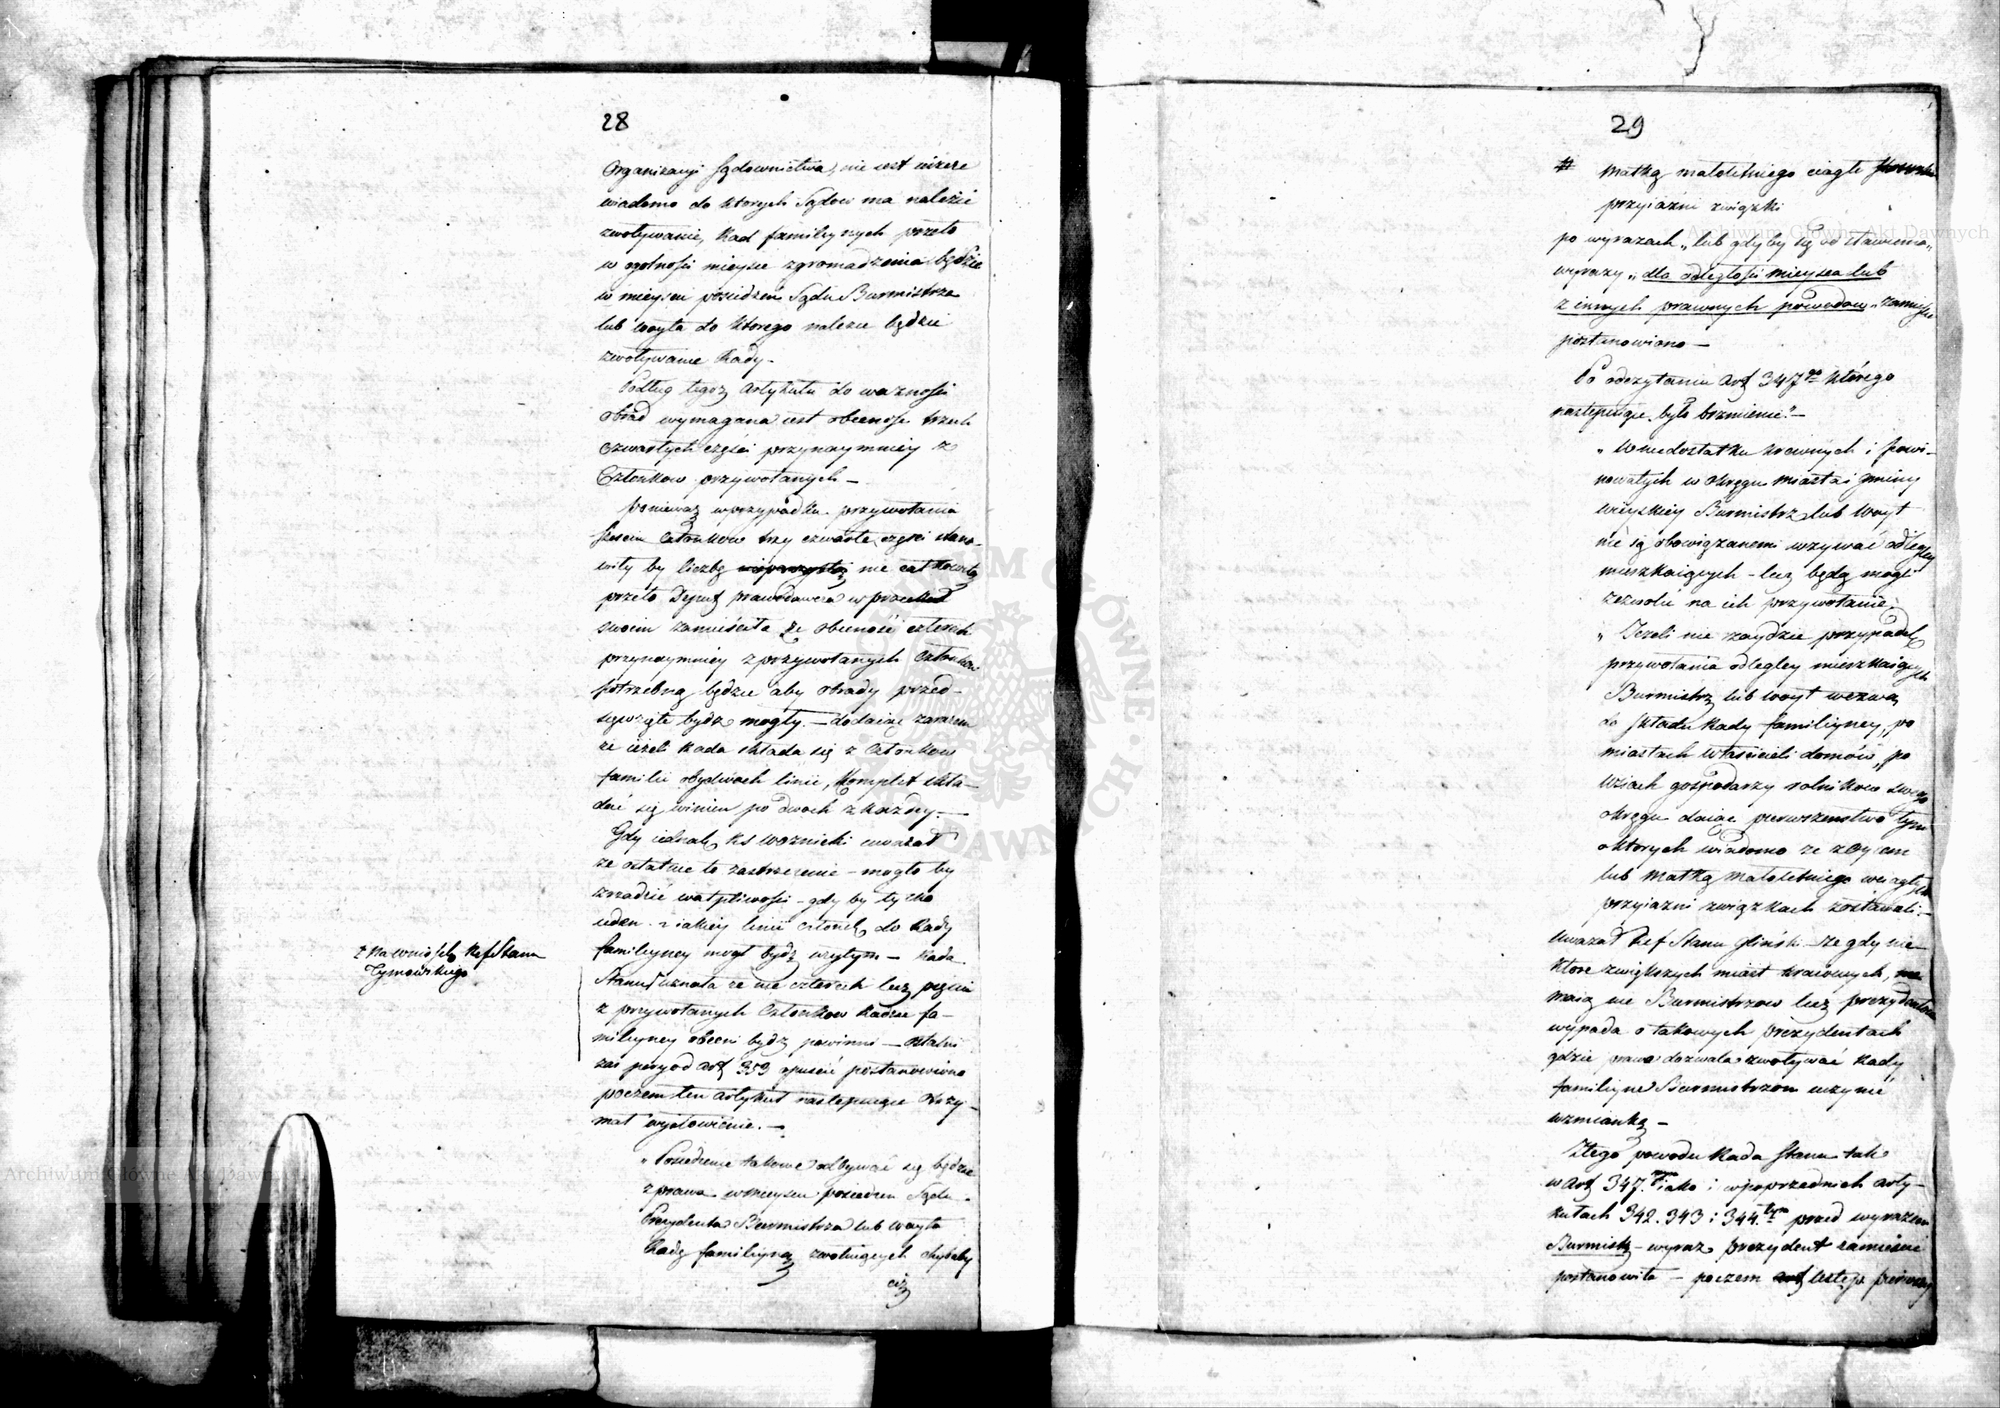 28
Organizacyi Sądownictwa, nie iest ieszcze
wiadomo do ktorych Sądow ma należeć
zwoływanie Rad familiynych przeto
w ogolności mieysce zgromadzenia będzie
w mieyscu posiedzeń Sądu Burmistrza
lub woyta do ktorego należeć będzie
zwoływanie Rady.
Podług tegoż artykułu do ważności
obrad wymagana iest obecność trzech
czwartych części przynaymniey z
Członkow przywołanych —
ponieważ w przypadku przywołania
sześciu Członkow trzy czwarte części stano-
wiły by liczbę nie całkowitą
przeto Deput prawodawcza w
swoim zamieściła że obecność czterech
przynaymniey z przywołanych Członkow
potrzebną będzie aby obrady przed-
sięwzięte bydź mogły. — dodaiąc zarazem
że ieżeli Rada składa się z Członkow
familii obydwoch linii, Komplet skła-
dać się winien po dwoch z każdey. —
Gdy iednak Ks Woznicki uważał
że ostatnie to zastrzeżenie — mogło by
zrządzić wątpliwości — gdy by tylko
ieden z iakiey linii członek do Rady
familiyney mogł bydź wziętym — Rada
Stanu uznała że nie czterech lecz pięciu
z przywołanych Członkow Radzie fa-
miliyney obecni bydź powinni — ostatni
zaś peryod art 353 opuścić postanowiono
poczem ten artykuł następuiące otrzy-
mał wysłowienie. —
„ Posiedzenie takowe odbywać się będzie
z prawa w mieyscu posiedzeń Sądu
Prezydenta Burmistrza lub woyta
Radę familiyną zwołuiących chybaby
ciż
z na wniosek Ref Stanu
Tymowskiego
29
# matką małoletniego ciągłe
przyiaźni związki
po wyrazach „ lub gdyby się od stawienia „
wyrazy „ dla odległości mieysca lub
z innych prawnych powodow „
postanowiono —
Po odczytaniu art 347go którego
następuiące było brzmienie. —
„ W niedostatku krewnych i powi-
nowatych w okręgu miasta i gminy
wieyskiey Burmistrz lub Woyt
nie są obowiązanemi wzywać odlegley
mieszkaiących — lecz będą mogli
zezwolić na ich przywołanie,
„ Jeżeli nie zaydzie przypadek
przywołania odlegley mieszkaiących
Burmistrz lub woyt wezwą
do składu Rady familiyney, po
miastach właścicieli domów, po
wsiach gospodarzy rolnikow swego
okręgu daiąc pierwszenstwo tym
o ktorych wiadomo że z Oycem
lub matką małoletniego w ciągłych
przyiaźni związkach zostawali. —
Uważał Ref Stanu Gliński — że gdy nie-
które z większych miast kraiowych,
maią nie Burmistrzow lecz prezydentow
wypada o takowych prezydentach
gdzie prawo dozwala zwoływać Rady
familiyne Burmistrzom uczynić
wzmiankę —
Z tego powodu Rada Stanu tak
w art 347. iako i w poprzednich arty-
kułach 342. 343 i 344.tym przed wyrazem
Burmistrz — wyraz prezydent zamieścić
postanowiła — poczem ustęp pierwszy
ARCHIWUM GŁÓWNE AKT DAWNYCH
Archiwum Główne Akt Dawnych
Archiwum Główne Akt Dawnych